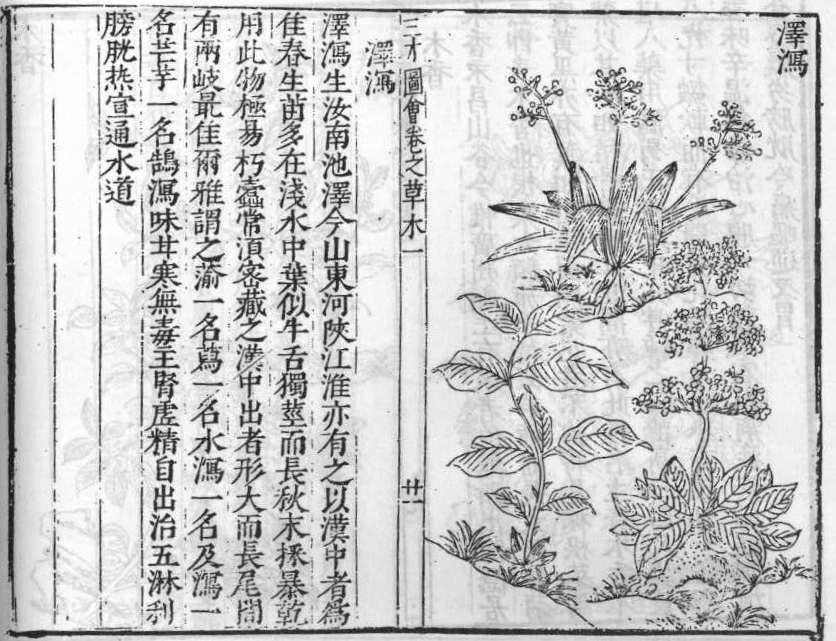 澤瀉
三才圖會卷之草木一
廿一
澤瀉
澤瀉生汝南池澤今山東河陝江淮亦有之以漢中者爲
佳春生苗多在淺水中葉似牛舌獨莖而長秋末採暴乾
用此物極易朽蠹常湏密藏之漢中出者形大而長尾間
有兩岐最佳爾雅謂之蕍一名蕮一名水瀉一名及瀉一
名芒芋一名鵠瀉味甘寒無毒主腎虚精自出治五淋利
膀胱热宣通水道